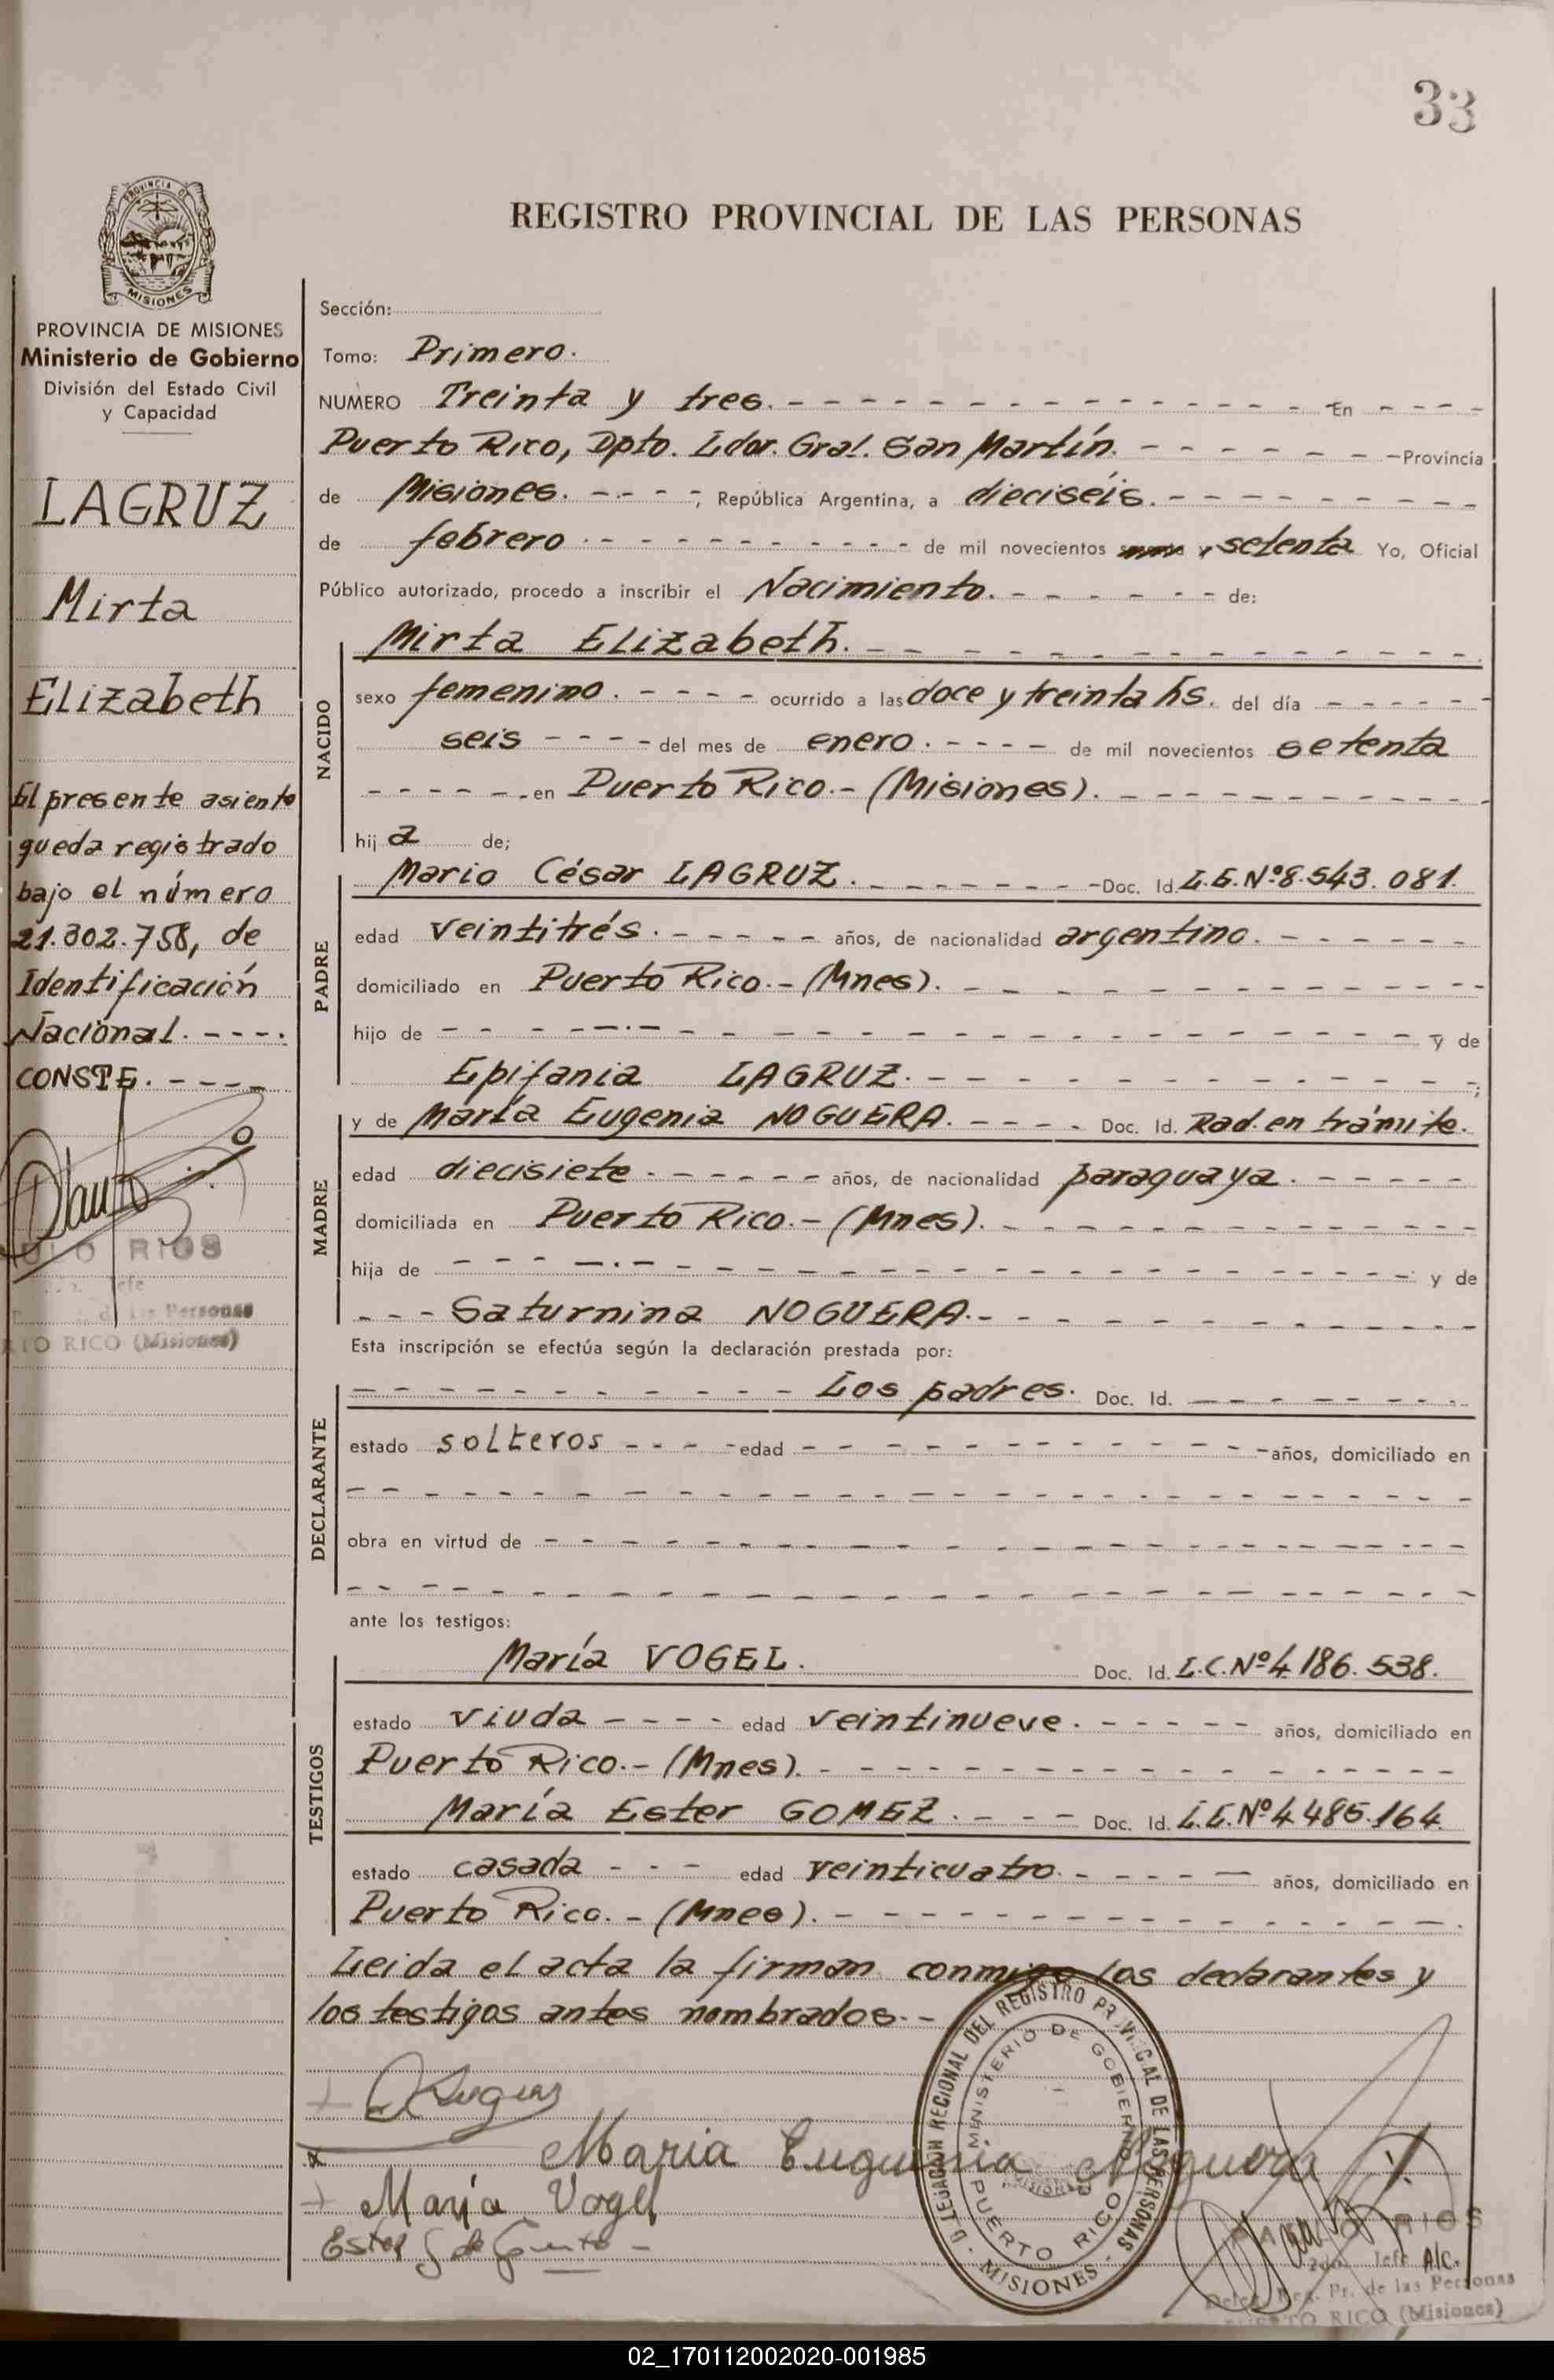 33
PROVINCIA DE
MISIONES
REGISTRO PROVINCIAL DE LAS PERSONAS
PROVINCIA DE MISIONES
Ministerio de Gobierno
División del Estado Civil
y Capacidad
LAGRUZ
Mirta
Elizabeth
El presente asiento
queda registrado
bajo el número
21.302.758, de
Identificación
Nacional. - - - .
CONSTE. - - - -
RIOS
Jefe
de las Personas
RTO RICO (Misiones)
Sección:
Tomo: Primero.
NUMERO Treinta y tres. - - - En - - - -
Puerto Rico, Dpto. Ldor. Gral. San Martín. - - - Provincia
de Misiones. - - - -; República Argentina, a dieciséis. - - -
de febrero - - - de mil novecientos y setenta Yo, Oficial
Público autorizado, procedo a inscribir el Nacimiento. - - - de:
NACIDO
Mirta Elizabeth. - - -
sexo femenino. - - - - ocurrido a las doce y treinta hs. del día - - - -
seis - - - - del mes de enero. - - - - de mil novecientos setenta
- - - - - en Puerto Rico.- (Misiones). - - -
hij a de;
PADRE
Mario César LAGRUZ. - - - Doc. Id. L.E. Nº 8.543.081.
edad veintitrés. - - - años, de nacionalidad argentino. - - -
domiciliado en Puerto Rico.- (Mnes). - - -
hijo de - - - y de
Epifania LAGRUZ. - - - ;
MADRE
y de María Eugenia NOGUERA. - - - - Doc. Id. Rad. en trámite.
edad diecisiete - - - años, de nacionalidad paraguaya. - - -
domiciliada en Puerto Rico.- (Mnes). - - -
hija de - - - y de
- - - Saturnina NOGUERA.- - - -
Esta inscripción se efectúa según la declaración prestada por:
DECLARANTE
- - - Los padres. Doc. Id. - - -
estado solteros - - - - edad - - - años, domiciliado en
- - -
obra en virtud de - - -
- - -
ante los testigos:
TESTIGOS
María VOGEL. Doc. Id. L.C. Nº 4.186.538.
estado viuda - - - - edad veintinueve. - - - años, domiciliado en
Puerto Rico.- (Mnes). - - -
María Ester GOMEZ. - - - Doc. Id. L.C. Nº 4.485.164.
estado casada - - - edad veinticuatro. - - - años, domiciliado en
Puerto Rico. - (Mnes). - - -
Leida el acta la firman conmigo los declarantes y
los testigos antes nombrados.-
DELEGACION REGIONAL DEL REGISTRO PROVINCIAL DE LAS PERSONAS
MINISTERIO DE GOBIERNO
PUERTO RICO
- MISIONES -
Maria Eugenia Noguera
María Vogel
Ester G de
RIOS
Jefe A/C.
Deleg. Reg. Pr. de las Personas
PUERTO RICO (Misiones)
02_170112002020-001985